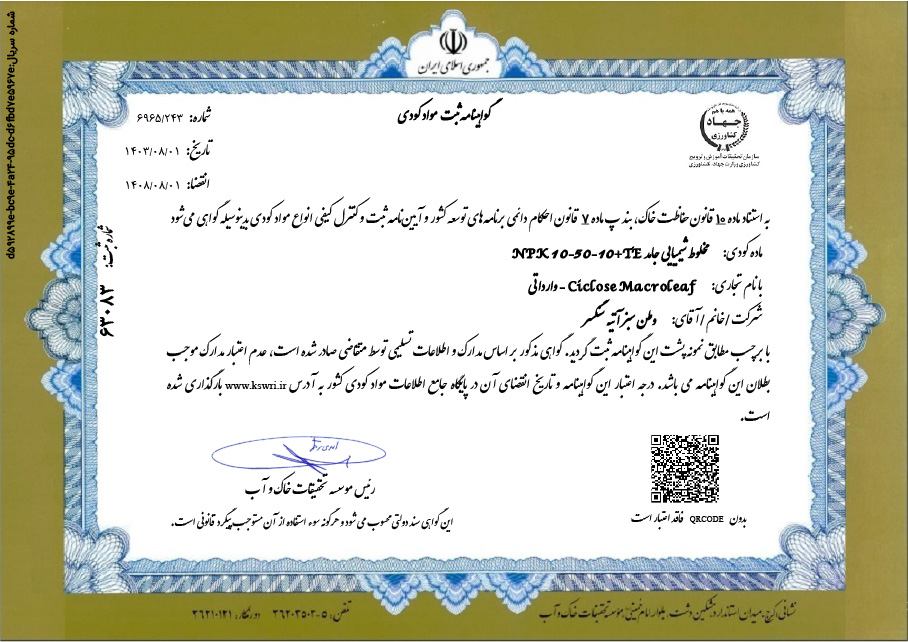 جمهوری اسلامی ایران
گواهینامه ثبت مواد کودی
شماره: ۶۹۶۵/۲۴۳
تاریخ: ۱۴۰۳/۰۸/۰۱
انقضا: ۱۴۰۸/۰۸/۰۱
همه با هم
جهاد
کشاورزی
سازمان تحقیقات، آموزش و ترویج
کشاورزی وزارت جهاد کشاورزی
به استناد ماده ۱۵ قانون حفاظت خاک، بند پ ماده ۷ قانون احکام دائمی برنامه های توسعه کشور و آیین نامه ثبت و کنترل کیفی انواع مواد کودی بدینوسیله گواهی می شود
ماده کودی: مخلوط شیمیایی جامد NPK 10-50-10+TE
با نام تجاری: Ciclose Macroleaf - وارداتی
شرکت / خانم / آقای: وطن سبز آتیه سنگسر
با برچسب مطابق نمونه پشت این گواهینامه ثبت گردید. گواهی مذکور بر اساس مدارک و اطلاعات تسلیمی توسط متقاضی صادر شده است، عدم اعتبار مدارک موجب
بطلان این گواهینامه می باشد. درجه اعتبار این گواهینامه و تاریخ انقضای آن در پایگاه جامع اطلاعات مواد کودی کشور به آدرس www.kswri.ir بارگذاری شده
است.
شماره ثبت: ۶۳۰۸۳
رئیس موسسه تحقیقات خاک و آب
بدون QRCODE فاقد اعتبار است
این گواهی سند دولتی محسوب می شود و هرگونه سوء استفاده از آن مستوجب پیگرد قانونی است.
نشانی: کرج، میدان استاندارد، مشکین دشت، بلوار امام خمینی، موسسه تحقیقات خاک و آب تلفن: ۵-۳۶۲۰۳۵۰۳ دورنگار: ۳۶۲۱۰۱۲۱
شماره سریال: d592899e-bc9e-4a24-95dc-d6fbd7e5967e